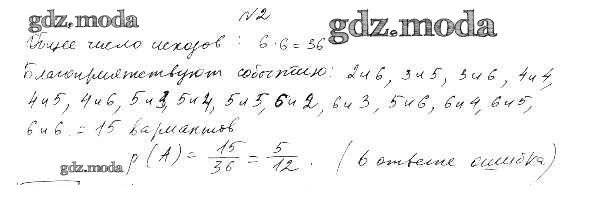 №2
gdz.moda
gdz.moda
Общее число исходов: 6·6=36
Благоприятствуют событию: 2и6, 3и5, 3и6, 4и4,
4и5, 4и6, 5и3, 5и4, 5и5, 6и2, 6и3, 5и6, 6и4, 6и5,
6и6 = 15 вариантов
gdz.moda p(A) = 15/36 = 5/12. (в ответе ошибка)